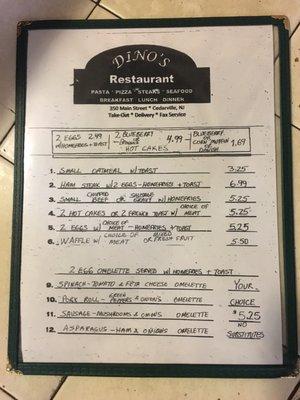 DINO'S
Restaurant
PASTA · PIZZA · STEAKS · SEAFOOD
BREAKFAST LUNCH DINNER
350 Main Street * Cedarville, NJ
Take-Out * Delivery * Fax Service
2 EGGS 2.49
W/HOMEFRIES + TOAST
2 BLUEBERRY
OR
HOT CAKES
4.99
BLUEBERRY
OR
CORN MUFFIN
OR
DANISH
1.69
1. SMALL OATMEAL W/ TOAST 3.25
2. HAM STEAK W/ 2 EGGS - HOMEFRIES + TOAST 6.99
3. SMALL CHIPPED BEEF OR SAUSAGE GRAVY W/ HOMEFRIES 5.25
4. 2 HOT CAKES OR 2 FRENCH TOAST W/ CHOICE OF MEAT 5.25
5. 2 EGGS W/ CHOICE OF MEAT - HOMEFRIES + TOAST 5.25
6. WAFFLE W/ CHOICE OF MEAT OR MIXED FRESH FRUIT 5.50
2 EGG OMELETTE SERVED W/ HOMEFRIES + TOAST
9. SPINACH - TOMATO & FETA CHEESE OMELETTE YOUR
10. PORK ROLL - GREEN PEPPERS & ONION'S OMELETTE CHOICE
11. SAUSAGE - MUSHROOMS & ONION'S OMELETTE $5.25
12. ASPARAGUS - HAM & ONIONS OMELETTE NO SUBSTITUTES